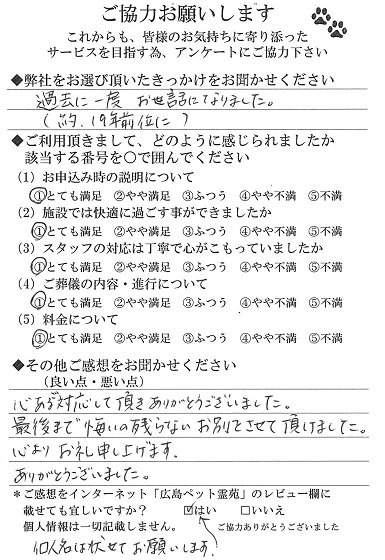 ご協力お願いします
これからも、皆様のお気持ちに寄り添った
サービスを目指す為、アンケートにご協力下さい
◆弊社をお選び頂いたきっかけをお聞かせください
過去に一度 お世話になりました。
(約、19年前位に)
◆ご利用頂きまして、どのように感じられましたか
該当する番号を○で囲んでください
(1) お申込み時の説明について
①とても満足 ②やや満足 ③ふつう ④やや不満 ⑤不満
(2) 施設では快適に過ごす事ができましたか
①とても満足 ②やや満足 ③ふつう ④やや不満 ⑤不満
(3) スタッフの対応は丁寧で心がこもっていましたか
①とても満足 ②やや満足 ③ふつう ④やや不満 ⑤不満
(4) ご葬儀の内容・進行について
①とても満足 ②やや満足 ③ふつう ④やや不満 ⑤不満
(5) 料金について
①とても満足 ②やや満足 ③ふつう ④やや不満 ⑤不満
◆その他ご感想をお聞かせください
(良い点・悪い点)
心ある対応して頂きありがとうございました。
最後まで悔いの残らないお別れをさせて頂けました。
心より お礼申し上げます。
ありがとうございました。
*ご感想をインターネット「広島ペット霊苑」のレビュー欄に
載せても宜しいですか? ☑はい □いいえ
個人情報は一切記載しません。 ご協力ありがとうございました
個人名は伏せてお願いします。